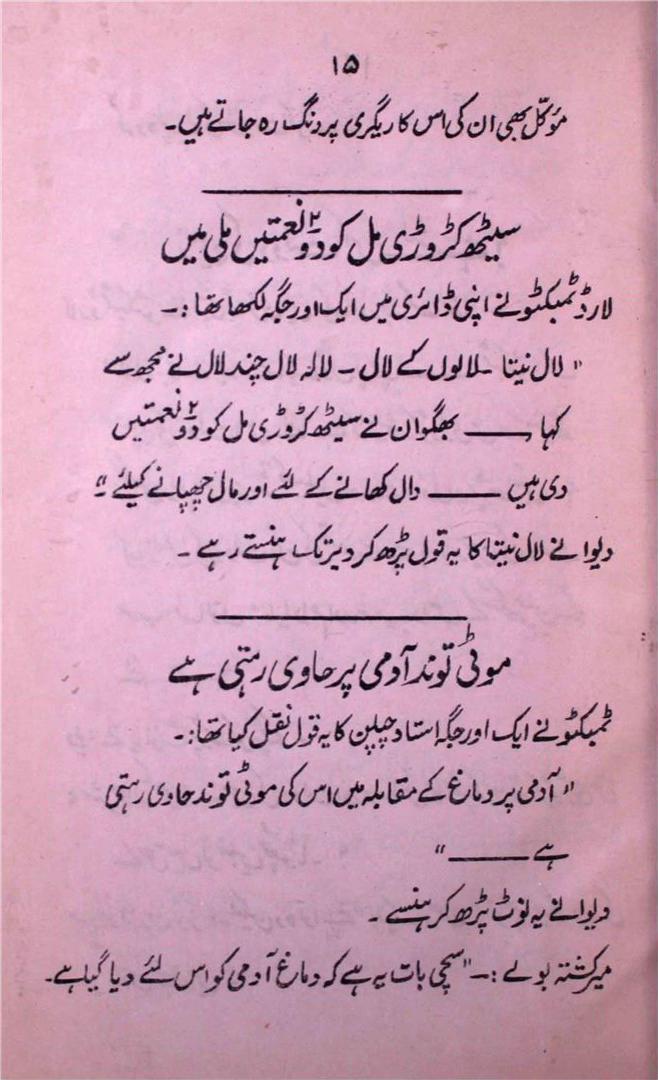 ۱۵
مؤکّل بھی ان کی اس کاریگری پر دنگ رہ جاتے ہیں۔
سیٹھ کڑوڑی مل کو دو۲ نعمتیں ملی ہیں
لارڈ ٹمبکٹو نے اپنی ڈائری میں ایک اور جگہ لکھا تھا :۔
" لال نیتا ۔ لالوں کے لال ۔ لالہ لال چند لال نے مجھ سے
کہا ــــــ بھگوان نے سیٹھ کڑوڑی مل کو دو۲ نعمتیں
دی ہیں ــــــ دال کھانے کے لئے اور مال چھپانے کیلئے ۔"
دیوانے لال نیتا کا یہ قول پڑھ کر دیر تک ہنستے رہے ۔
موٹی توند آدمی پر حاوی رہتی ہے
ٹمبکٹو نے ایک اور جگہ استاد چپلن کا یہ قول نقل کیا تھا :۔
" آدمی پر دماغ کے مقابلہ میں اس کی موٹی توند حاوی رہتی
ہے ــــــ "
دیوانے یہ نوٹ پڑھ کر ہنسے ۔
میر کشتہ بولے :۔ "سچی بات یہ ہے کہ دماغ آدمی کو اس لئے دیا گیا ہے۔